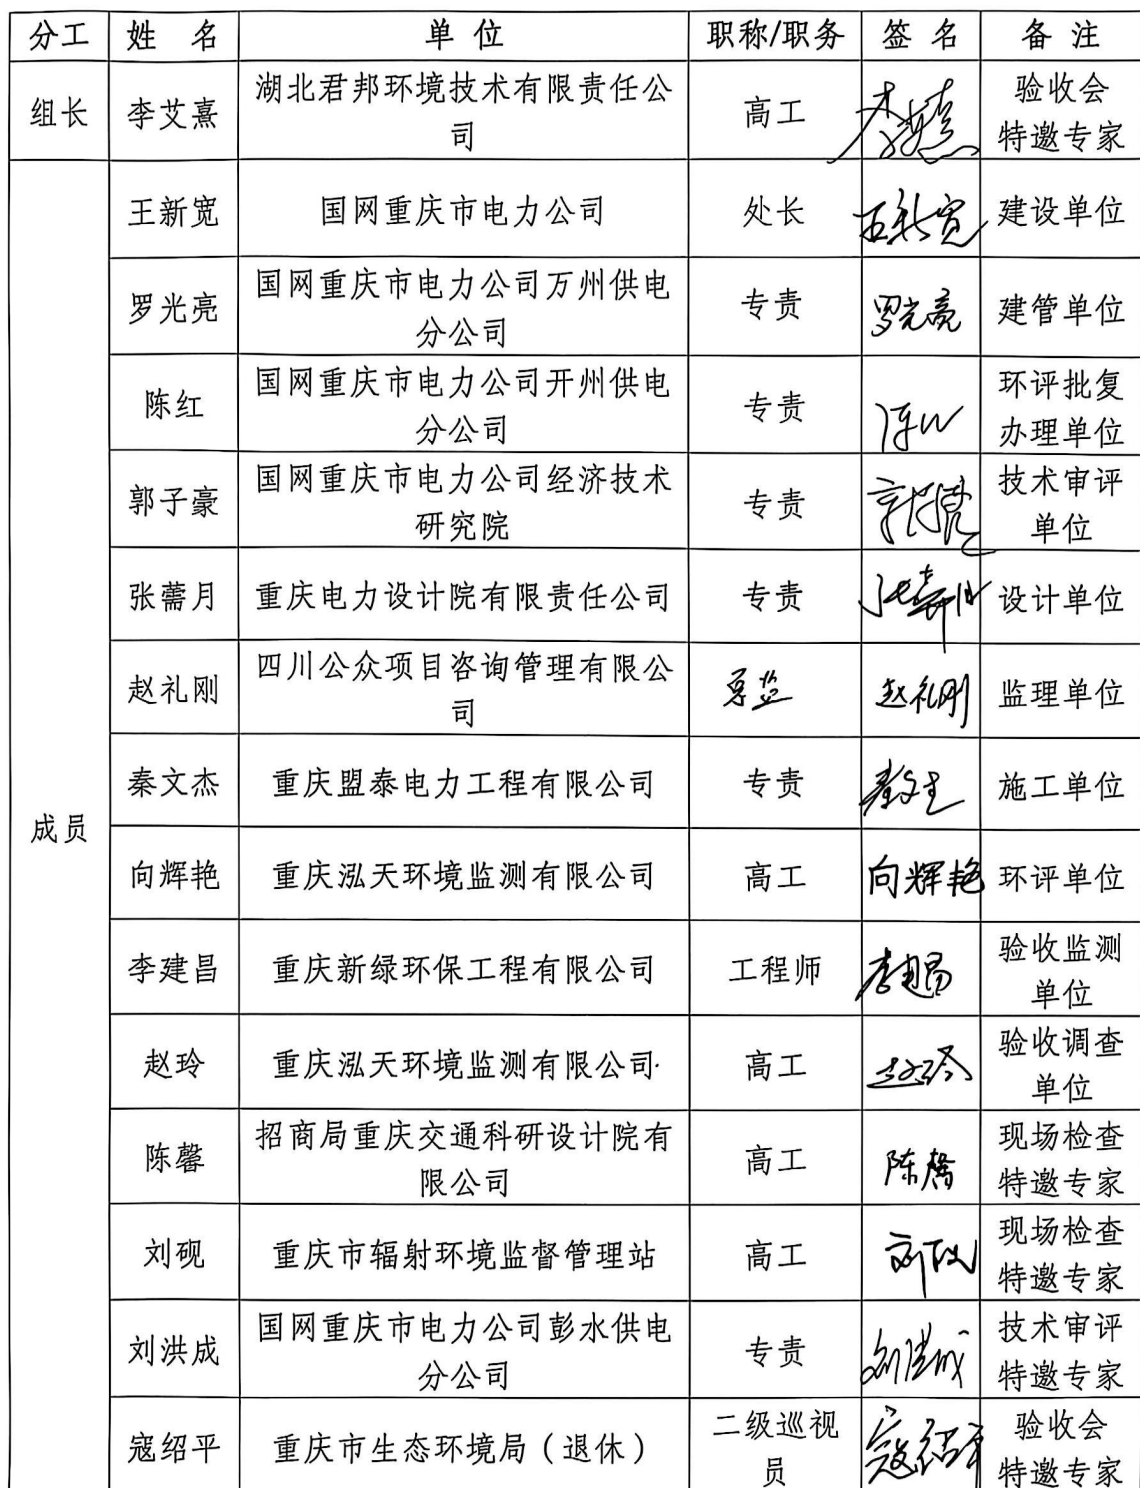 分工 姓 名 单 位 职称/职务 签 名 备 注
组长 李艾熹 湖北君邦环境技术有限责任公 高工 验收会
司 特邀专家
成员
王新宽 国网重庆市电力公司 处长 王新宽 建设单位
罗光亮 国网重庆市电力公司万州供电 专责 罗光亮 建管单位
分公司
陈红 国网重庆市电力公司开州供电 专责 陈红 环评批复
分公司 办理单位
郭子豪 国网重庆市电力公司经济技术 专责 技术审评
研究院 单位
张薷月 重庆电力设计院有限责任公司 专责 设计单位
赵礼刚 四川公众项目咨询管理有限公 总监 赵礼刚 监理单位
司
秦文杰 重庆盟泰电力工程有限公司 专责 秦文杰 施工单位
向辉艳 重庆泓天环境监测有限公司 高工 向辉艳 环评单位
李建昌 重庆新绿环保工程有限公司 工程师 李建昌 验收监测
单位
赵玲 重庆泓天环境监测有限公司 高工 赵玲 验收调查
单位
陈馨 招商局重庆交通科研设计院有 高工 陈馨 现场检查
限公司 特邀专家
刘砚 重庆市辐射环境监督管理站 高工 刘砚 现场检查
特邀专家
刘洪成 国网重庆市电力公司彭水供电 专责 刘洪成 技术审评
分公司 特邀专家
寇绍平 重庆市生态环境局（退休） 二级巡视 寇绍平 验收会
员 特邀专家